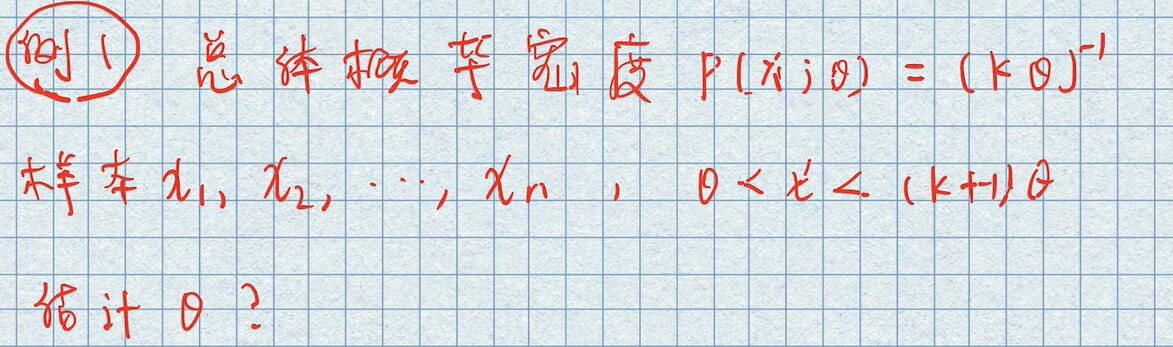 例1 总体概率密度 P(x;θ) = (kθ)⁻¹
样本 x₁, x₂, ⋯, xₙ , θ < x < (k+1)θ
估计 θ ?